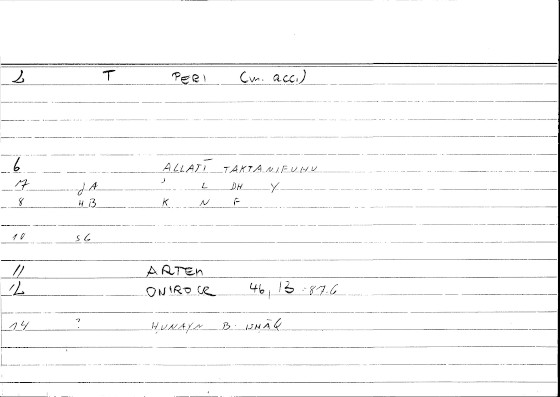 2 T PERI (m. acc.)
6 ALLATĪ TAKTANIFUHU
17 JA ' L DH Y
8 HB K N F
10 SG
11 ARTEM
12 ONIROCR 46, 13 : 87.6
14 ? HUNAYN B. ISHĀQ